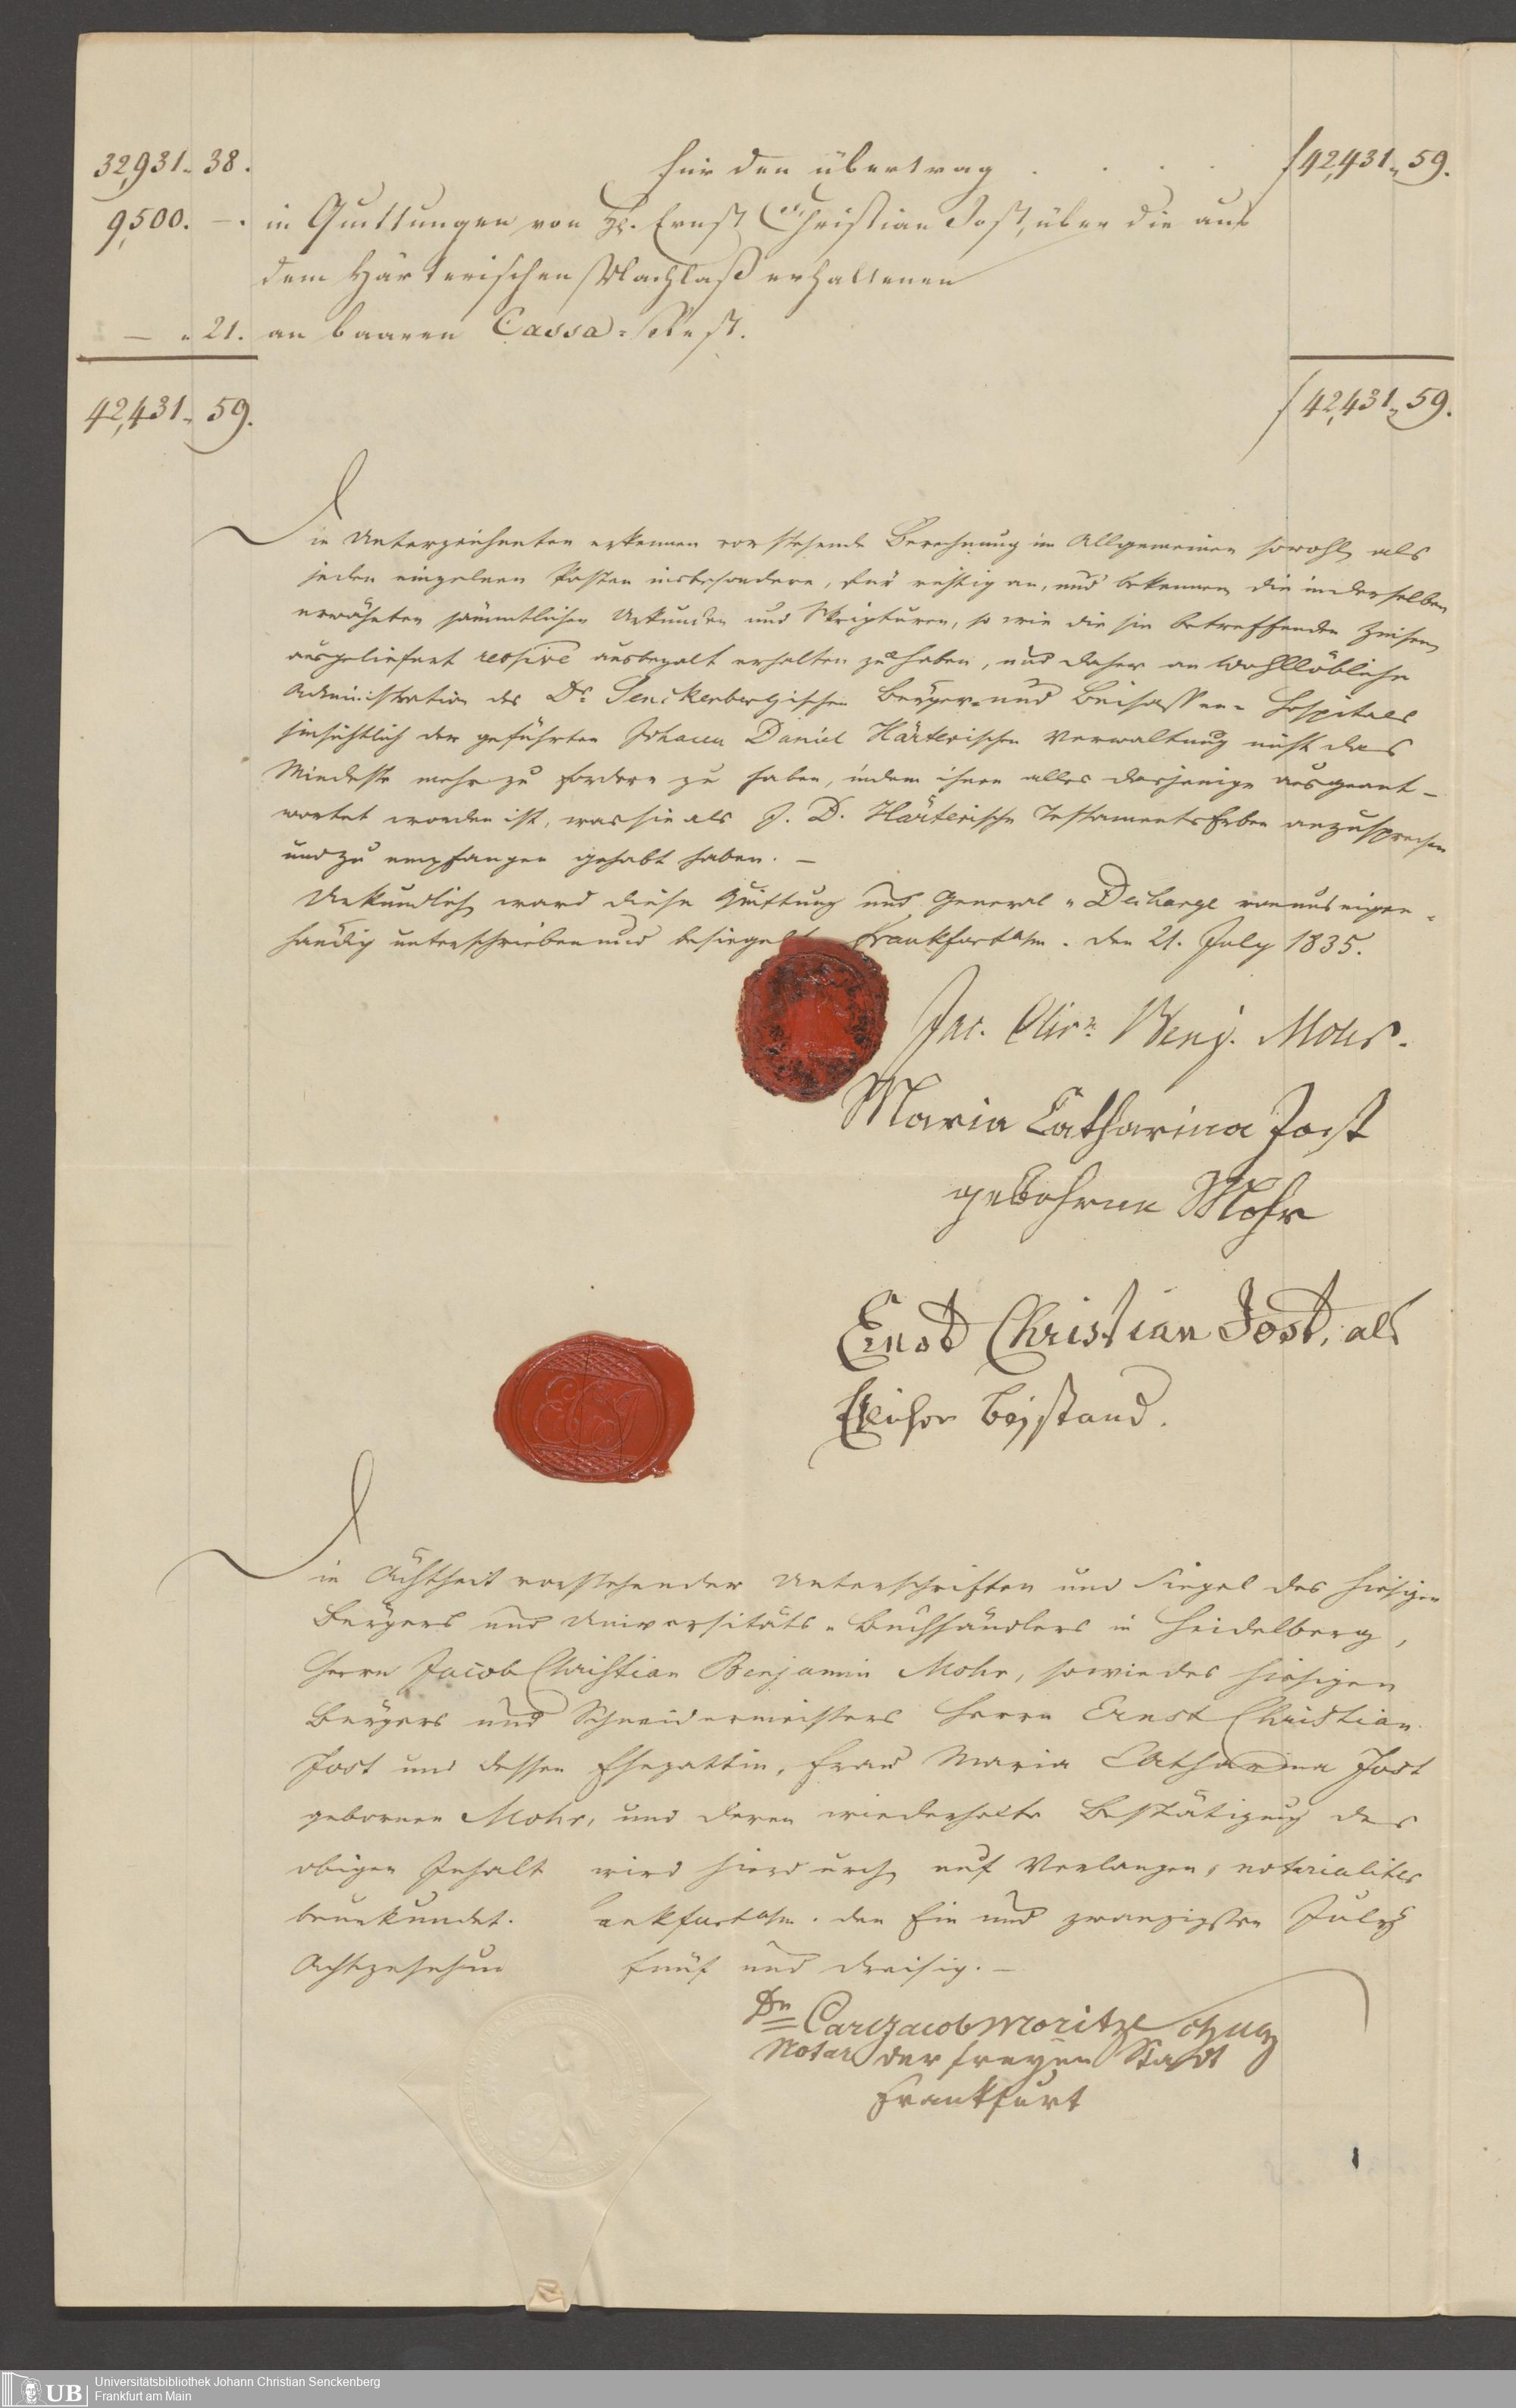 32,931. 38. für den Übertrag . . . . f 42,431. 59.
9,500. —. in Quittungen von H. Ernst Christian Jost, über die aus
dem Härterischen Nachlaß erhaltenen
— . 21. an baaren Cassa-Rest.
42,431. 59. f 42,431. 59.
Die Unterzeichneten erkennen vorstehende Berechnung im Allgemeinen sowohl, als
jeden einzelnen Posten insbesondere, für richtig an, und bekennen die in derselben
erwähnten sämmtlichen Urkunden und Skripturen, so wie die sie betreffenden Zinsen
ausgeliefert respive ausbezalt erhalten zu haben, und daher an Wohllöbliche
Administration des Dr. Senckenbergischen Bürger- und Beisassen-Hospitals
hinsichtlich der geführten Johann Daniel Härterischen Verwaltung nicht das
Mindeste mehr zu fordern zu haben, indem ihnen alles dasjenige ausgeant-
wortet worden ist, was sie als J. D. Härterische Testaments Erben anzusprechen
und zu empfangen gehabt haben. —
Urkundlich ward diese Quittung und General-Decharge von uns eigen-
händig unterschrieben und besiegelt Frankfurt a/m. den 21. July 1835.
Jac. Chr. Benj. Mohr.
Maria Catharina Jost
gebohrne Mohr
Ernst Christian Jost, als
Ehlicher Beystand.
ECJ
Die Ächtheit vorstehender Unterschriften und Siegel des hiesigen
Bürgers und Universitäts-Buchhändlers in Heidelberg,
Herrn Jacob Christian Benjamin Mohr, sowie des hiesigen
Bürgers und Schneidermeisters Herrn Ernst Christian
Jost und dessen Ehegattin, Frau Maria Catharina Jost
gebornen Mohr, und deren wiederholte Bestätigung des
obigen Inhalt wird hierdurch, auf Verlangen, notarialiter
beurkundet. ankfurt a/m. den Ein und zwanzigsten July
Achtzehehun fünf und dreisig. —
Dr. Carl Jacob Moritz
Notar der freyen Stadt
Frankfurt
UB Universitätsbibliothek Johann Christian Senckenberg
Frankfurt am Main